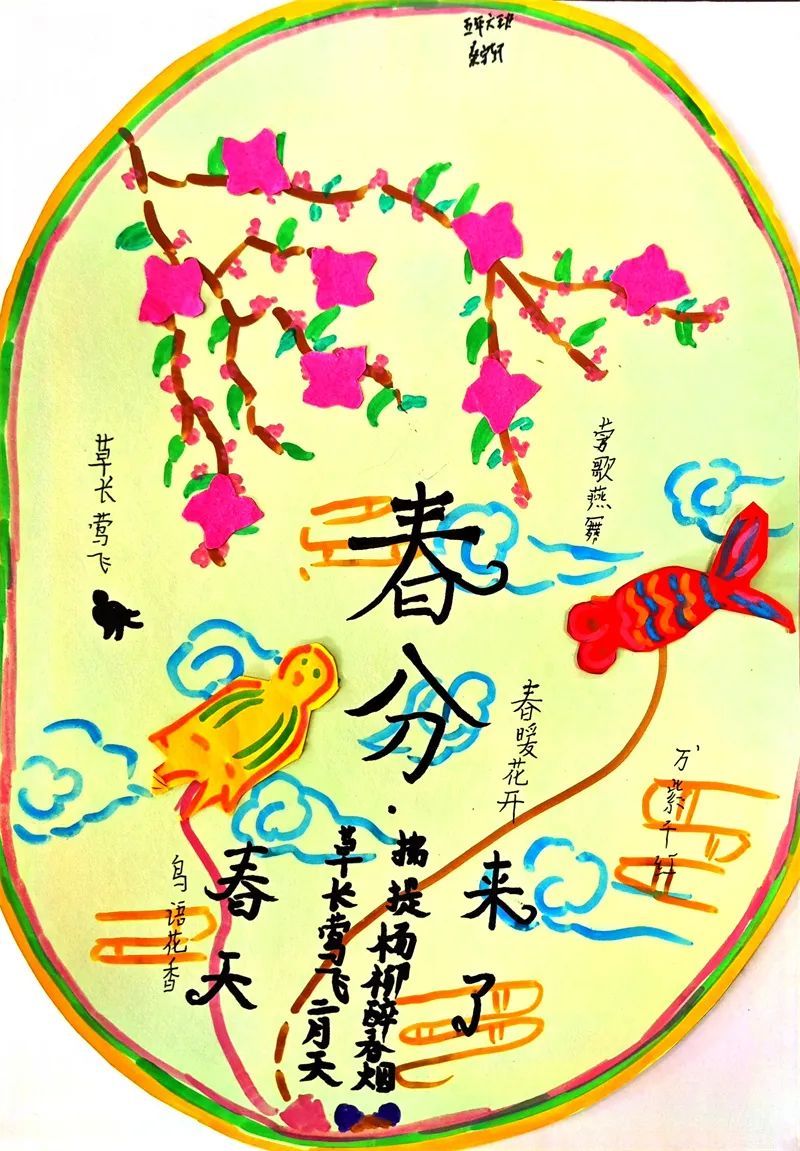 五年六班
草长莺飞
莺歌燕舞
春分
春暖花开
万紫千红
鸟语花香
春天
来了
草长莺飞二月天
提杨柳醉春烟